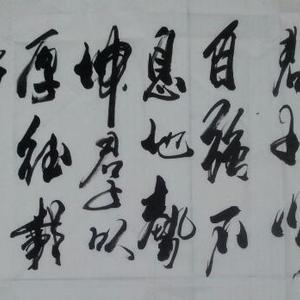 君子以
自強不
息地勢
坤君子以
厚德載